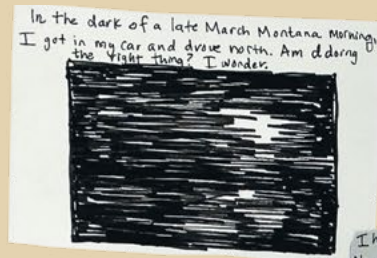 In the dark of a late March Montana morning,
I got in my car and drove north. Am I doing
the right thing? I wonder.
I h